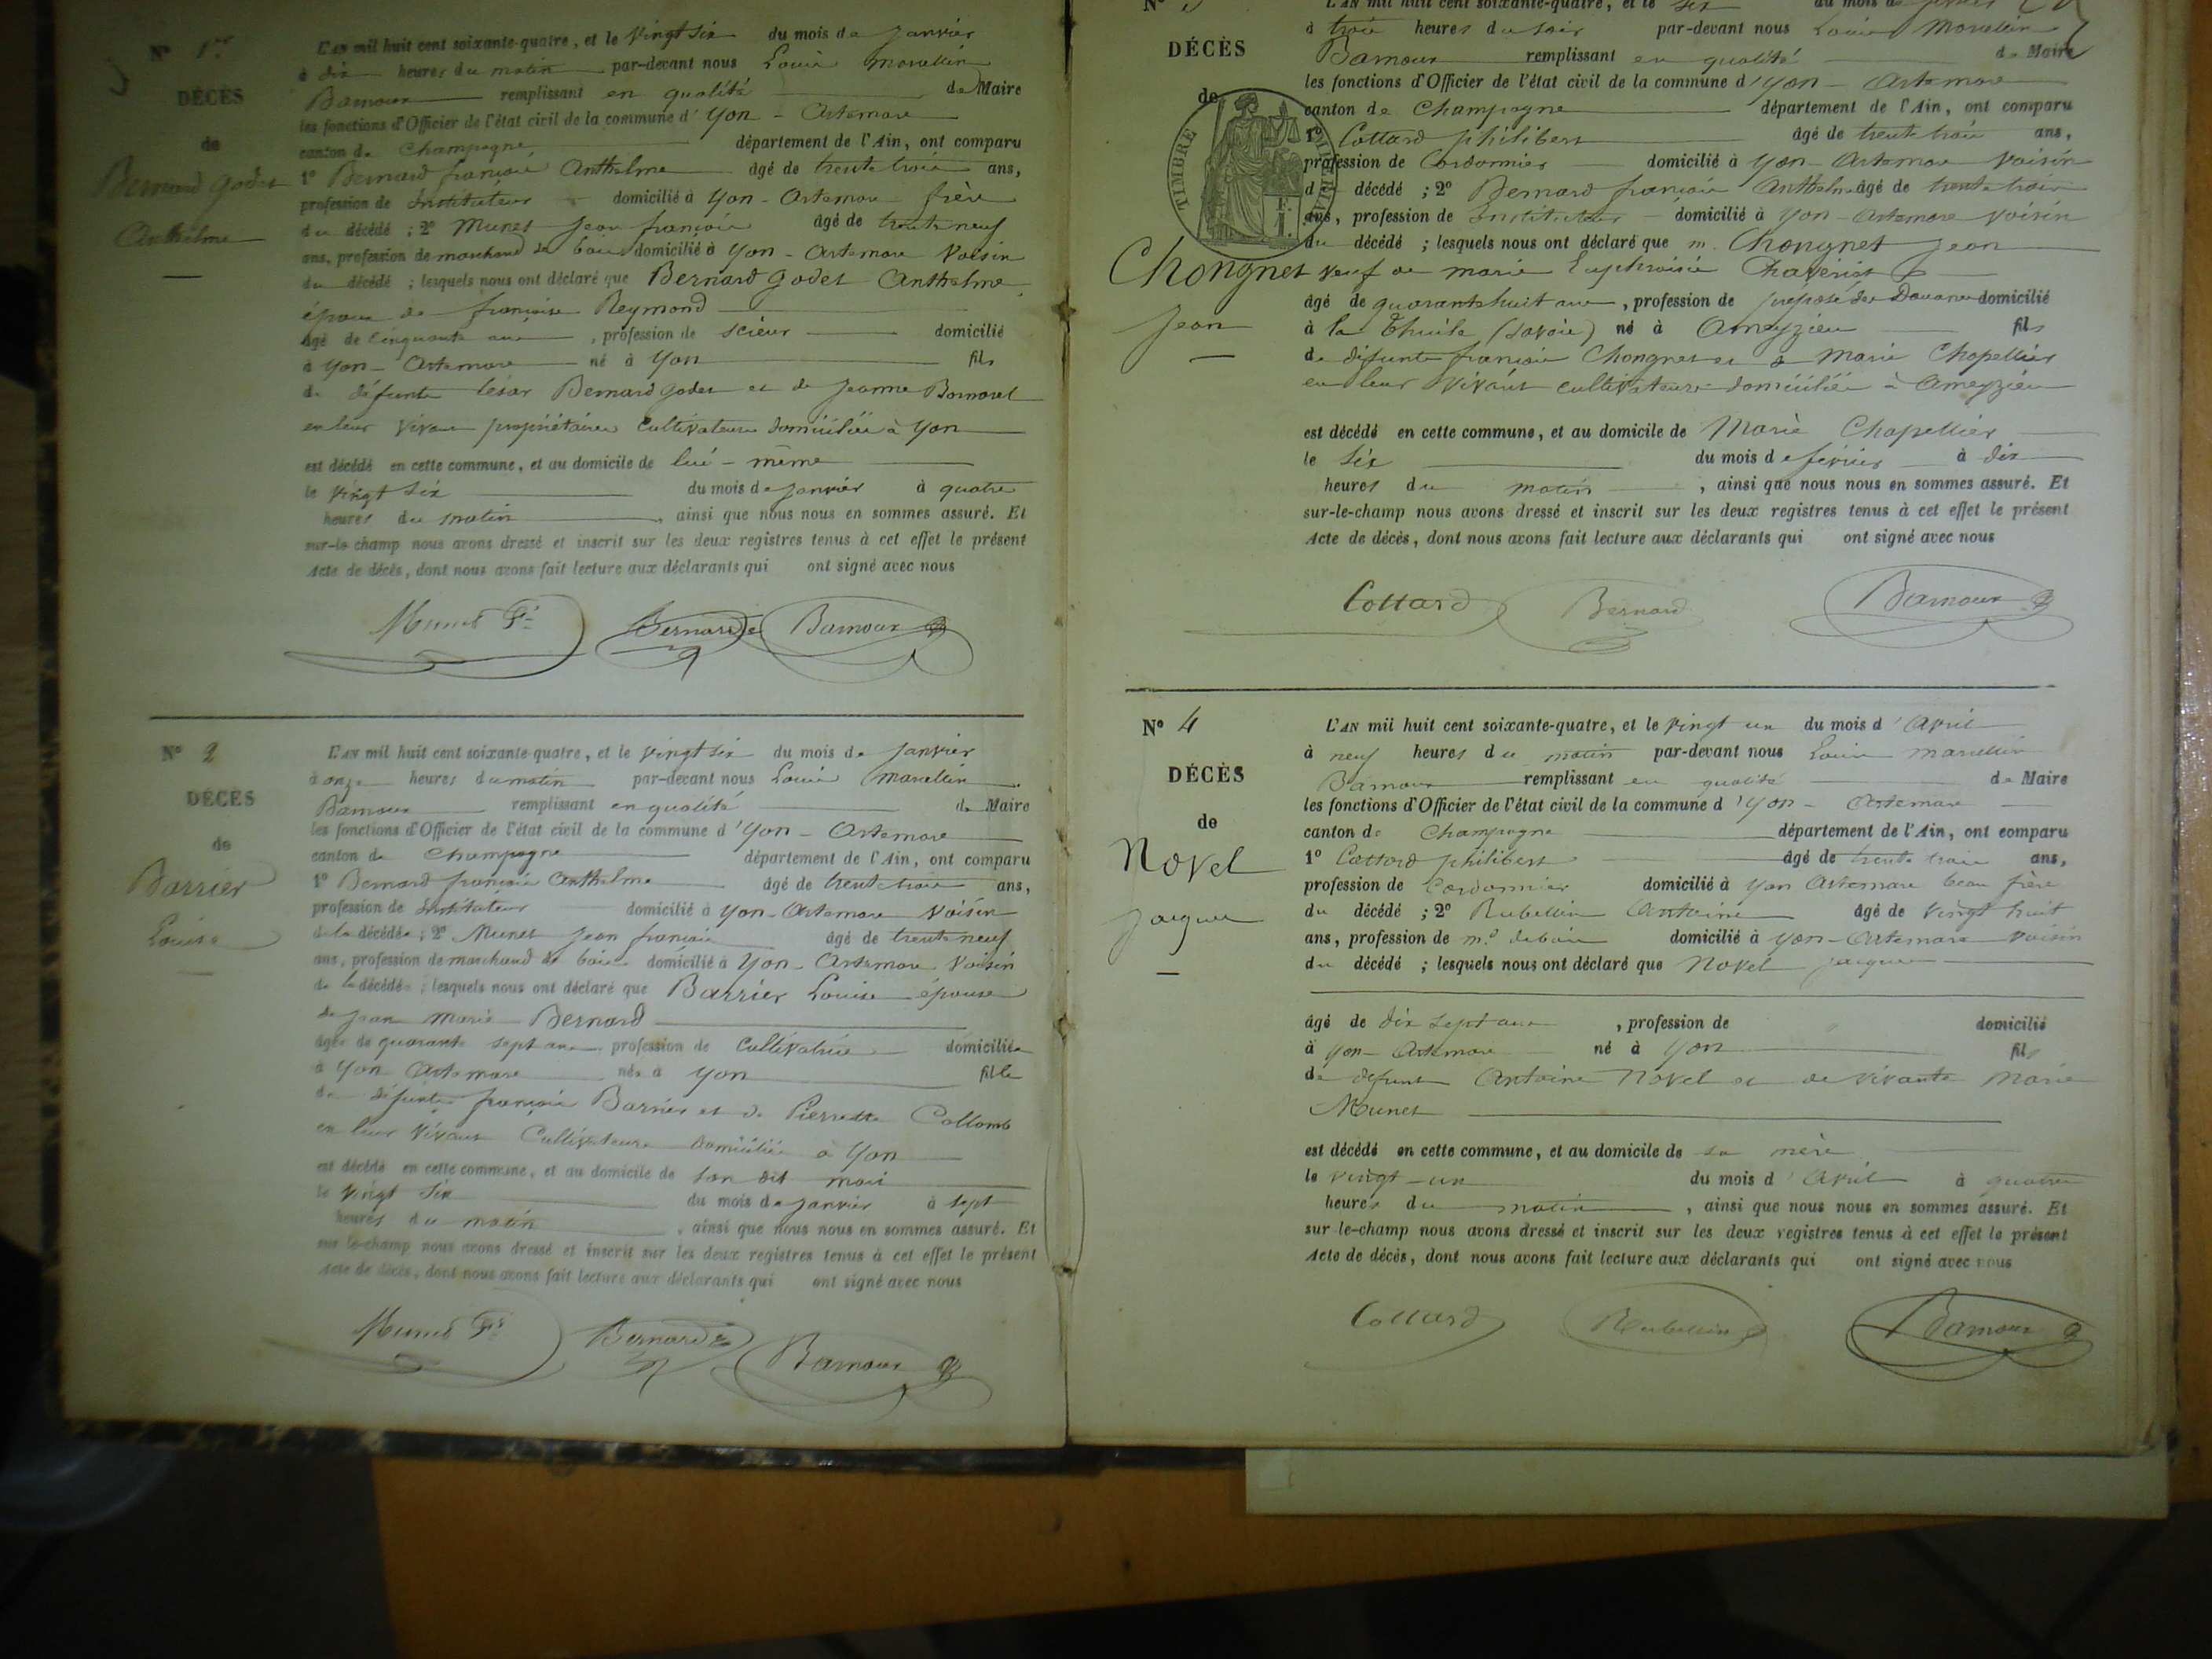 N° 1er
DÉCÈS
de
Bernard Godet
Anthelme
L'AN mil huit cent soixante-quatre, et le vingt six du mois de janvier
à dix heures du matin par-devant nous Louis Marcellin
Barnoux remplissant en qualité de Maire
les fonctions d'Officier de l'état civil de la commune d'Yon - Artemare
canton de Champagne département de l'Ain, ont comparu
1° Bernard françois Anthelme âgé de trente trois ans,
profession de Instituteur domicilié à Yon - Artemare frère
du décédé ; 2° Munet Jean françois âgé de trente neuf
ans, profession de marchand de bois domicilié à Yon - Artemare Voisin
du décédé ; lesquels nous ont déclaré que Bernard Godet Anthelme
époux de françoise Reymond
âgé de Cinquante ans, profession de scieur domicilié
à Yon - Artemare né à Yon fils
de défunts César Bernard Godet et de Jeanne Bornarel
en leur vivant propriétaires Cultivateurs domiciliés à Yon
est décédé en cette commune, et au domicile de lui - même
le vingt six du mois de janvier à quatre
heures du matin, ainsi que nous nous en sommes assuré. Et
sur-le-champ nous avons dressé et inscrit sur les deux registres tenus à cet effet le présent
Acte de décès, dont nous avons fait lecture aux déclarants qui ont signé avec nous
Munet Fs Bernard Barnoux
N° 2
DÉCÈS
de
Barrier
Louise
L'AN mil huit cent soixante-quatre, et le vingt six du mois de janvier
à onze heures du matin par-devant nous Louis Marcellin
Barnoux remplissant en qualité de Maire
les fonctions d'Officier de l'état civil de la commune d'Yon - Artemare
canton de Champagne département de l'Ain, ont comparu
1° Bernard françois Anthelme âgé de trente trois ans,
profession de Instituteur domicilié à Yon - Artemare Voisin
de la décédée ; 2° Munet Jean françois âgé de trente neuf
ans, profession de marchand de bois domicilié à Yon - Artemare Voisin
de la décédée ; lesquels nous ont déclaré que Barrier Louise épouse
de Jean Marie Bernard
âgée de quarante sept ans profession de Cultivatrice domiciliée
à Yon Artemare née à Yon fille
de défunts françois Barrier et de Pierrette Collomb
en leur vivant Cultivateurs domiciliés à Yon
est décédée en cette commune, et au domicile de son dit mari
le vingt six du mois de janvier à sept
heures du matin, ainsi que nous nous en sommes assuré. Et
sur-le-champ nous avons dressé et inscrit sur les deux registres tenus à cet effet le présent
Acte de décès, dont nous avons fait lecture aux déclarants qui ont signé avec nous
Munet Fs Bernard Barnoux
N° 3
DÉCÈS
de
TIMBRE IMPERIAL
Chongnet
Jean
L'AN mil huit cent soixante-quatre, et le six du mois de février
à trois heures du soir par-devant nous Louis Marcellin
Barnoux remplissant en qualité de Maire
les fonctions d'Officier de l'état civil de la commune d'Yon - Artemare
canton de Champagne département de l'Ain, ont comparu
1° Cottard philibert âgé de trente trois ans,
profession de Cordonnier domicilié à Yon - Artemare Voisin
du décédé ; 2° Bernard françois Anthelme âgé de trente trois
ans, profession de Instituteur domicilié à Yon - Artemare voisin
du décédé ; lesquels nous ont déclaré que m. Chongnet Jean
veuf de marie Euphroisie
âgé de quarante huit ans, profession de préposé des Douanes domicilié
à la Thuile (Savoie) né à Ameyzieu fils
de défunts françois Chongnet et de Marie Chapellier
en leur vivant cultivateurs domiciliés à Ameyzieu
est décédé en cette commune, et au domicile de Marie Chapellier
le six du mois de février à dix
heures du matin, ainsi que nous nous en sommes assuré. Et
sur-le-champ nous avons dressé et inscrit sur les deux registres tenus à cet effet le présent
Acte de décès, dont nous avons fait lecture aux déclarants qui ont signé avec nous
Cottard Bernard Barnoux
N° 4
DÉCÈS
de
Novel
Jacques
L'AN mil huit cent soixante-quatre, et le vingt un du mois d'Avril
à neuf heures du matin par-devant nous Louis Marcellin
Barnoux remplissant en qualité de Maire
les fonctions d'Officier de l'état civil de la commune d'Yon - Artemare
canton de Champagne département de l'Ain, ont comparu
1° Cottard philibert âgé de trente trois ans,
profession de Cordonnier domicilié à Yon Artemare beau frère
du décédé ; 2° Rubellin Antoine âgé de vingt huit
ans, profession de md de bois domicilié à Yon - Artemare voisin
du décédé ; lesquels nous ont déclaré que Novel Jacques
âgé de dix sept ans, profession de domicilié
à Yon - Artemare né à Yon fils
de defunt Antoine Novel et de vivante Marie
Munet
est décédé en cette commune, et au domicile de sa mère
le vingt - un du mois d'Avril à quatre
heures du matin, ainsi que nous nous en sommes assuré. Et
sur-le-champ nous avons dressé et inscrit sur les deux registres tenus à cet effet le présent
Acte de décès, dont nous avons fait lecture aux déclarants qui ont signé avec nous
Cottard Rubellin Barnoux